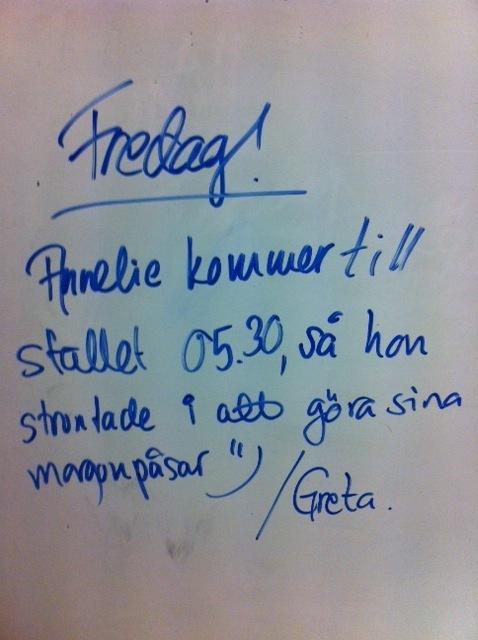 Fredag!
Annelie kommer till
stallet 05.30, så hon
struntade i att göra sina
morgonpåsar ")
/Greta.